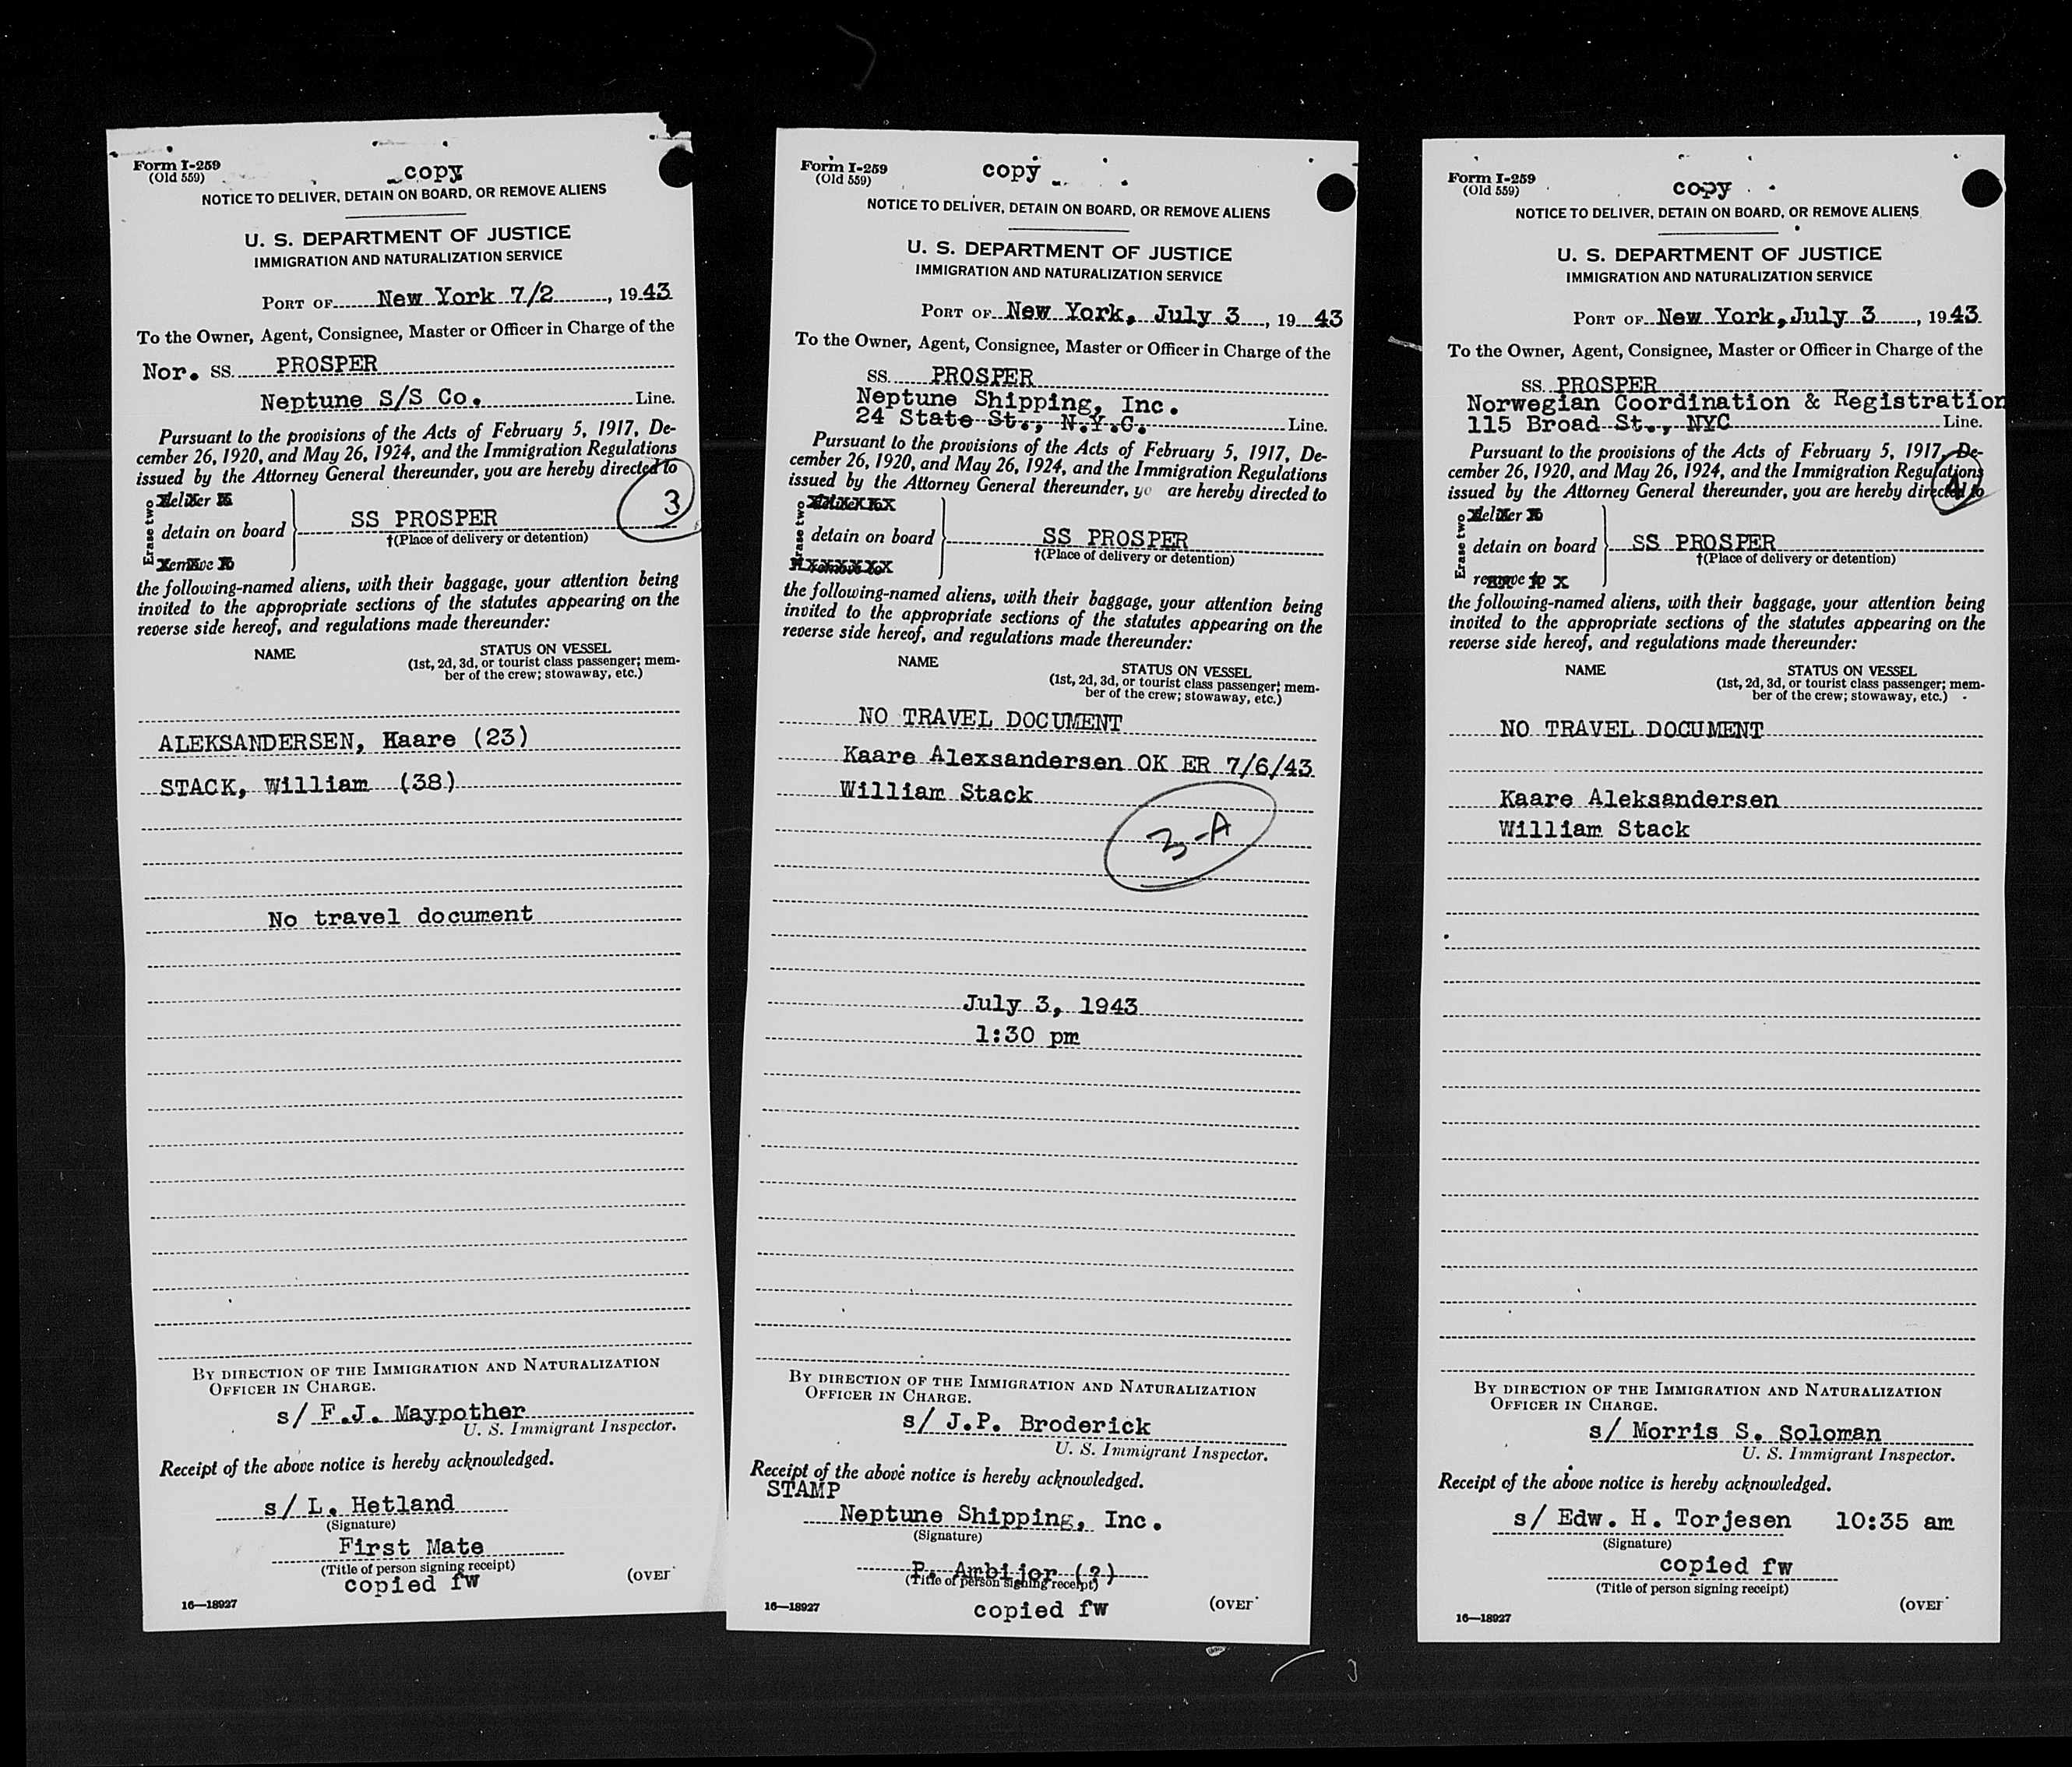 Form I-259
(Old 559)
copy
NOTICE TO DELIVER, DETAIN ON BOARD, OR REMOVE ALIENS
U. S. DEPARTMENT OF JUSTICE
IMMIGRATION AND NATURALIZATION SERVICE
PORT OF New York 7/2, 1943
To the Owner, Agent, Consignee, Master or Officer in Charge of the
Nor. SS. PROSPER
Neptune S/S Co. Line.
Pursuant to the provisions of the Acts of February 5, 1917, De-
cember 26, 1920, and May 26, 1924, and the Immigration Regulations
issued by the Attorney General thereunder, you are hereby directed to
3
Erase two
deliver to
detain on board
SS PROSPER
†(Place of delivery or detention)
remove to
the following-named aliens, with their baggage, your attention being
invited to the appropriate sections of the statutes appearing on the
reverse side hereof, and regulations made thereunder:
NAME
STATUS ON VESSEL
(1st, 2d, 3d, or tourist class passenger; mem-
ber of the crew; stowaway, etc.)
ALEKSANDERSEN, Kaare (23)
STACK, William (38)
No travel document
BY DIRECTION OF THE IMMIGRATION AND NATURALIZATION
OFFICER IN CHARGE.
s/ F.J. Maypother
U. S. Immigrant Inspector.
Receipt of the above notice is hereby acknowledged.
s/ L. Hetland
(Signature)
First Mate
(Title of person signing receipt)
copied fw
(OVER
16—18927
Form I-259
(Old 559)
copy
NOTICE TO DELIVER, DETAIN ON BOARD, OR REMOVE ALIENS
U. S. DEPARTMENT OF JUSTICE
IMMIGRATION AND NATURALIZATION SERVICE
PORT OF New York, July 3, 19 43
To the Owner, Agent, Consignee, Master or Officer in Charge of the
SS. PROSPER
Neptune Shipping, Inc.
24 State St., N.Y.C. Line.
Pursuant to the provisions of the Acts of February 5, 1917, De-
cember 26, 1920, and May 26, 1924, and the Immigration Regulations
issued by the Attorney General thereunder, yo are hereby directed to
Erase two
detain on board
SS PROSPER
†(Place of delivery or detention)
remove to
the following-named aliens, with their baggage, your attention being
invited to the appropriate sections of the statutes appearing on the
reverse side hereof, and regulations made thereunder:
NAME
STATUS ON VESSEL
(1st, 2d, 3d, or tourist class passenger; mem-
ber of the crew; stowaway, etc.)
NO TRAVEL DOCUMENT
Kaare Alexsandersen OK ER 7/6/43
William Stack
3-A
July 3, 1943
1:30 pm
BY DIRECTION OF THE IMMIGRATION AND NATURALIZATION
OFFICER IN CHARGE.
s/ J.P. Broderick
U. S. Immigrant Inspector.
Receipt of the above notice is hereby acknowledged.
STAMP
Neptune Shipping, Inc.
(Signature)
P. Ambijor (?)
(Title of person signing receipt)
16—18927
copied fw
(OVER
Form I-259
(Old 559)
copy
NOTICE TO DELIVER, DETAIN ON BOARD, OR REMOVE ALIENS
U. S. DEPARTMENT OF JUSTICE
IMMIGRATION AND NATURALIZATION SERVICE
PORT OF New York, July 3, 1943
To the Owner, Agent, Consignee, Master or Officer in Charge of the
SS. PROSPER
Norwegian Coordination & Registration
115 Broad St., NYC Line.
Pursuant to the provisions of the Acts of February 5, 1917, De-
cember 26, 1920, and May 26, 1924, and the Immigration Regulations
issued by the Attorney General thereunder, you are hereby directed to
4
Erase two
deliver to
detain on board
SS PROSPER
†(Place of delivery or detention)
remove to x
the following-named aliens, with their baggage, your attention being
invited to the appropriate sections of the statutes appearing on the
reverse side hereof, and regulations made thereunder:
NAME
STATUS ON VESSEL
(1st, 2d, 3d, or tourist class passenger; mem-
ber of the crew; stowaway, etc.)
NO TRAVEL DOCUMENT
Kaare Aleksandersen
William Stack
BY DIRECTION OF THE IMMIGRATION AND NATURALIZATION
OFFICER IN CHARGE.
s/ Morris S. Soloman
U. S. Immigrant Inspector.
Receipt of the above notice is hereby acknowledged.
s/ Edw. H. Torjesen 10:35 am
(Signature)
copied fw
(Title of person signing receipt)
(OVER
16—18927